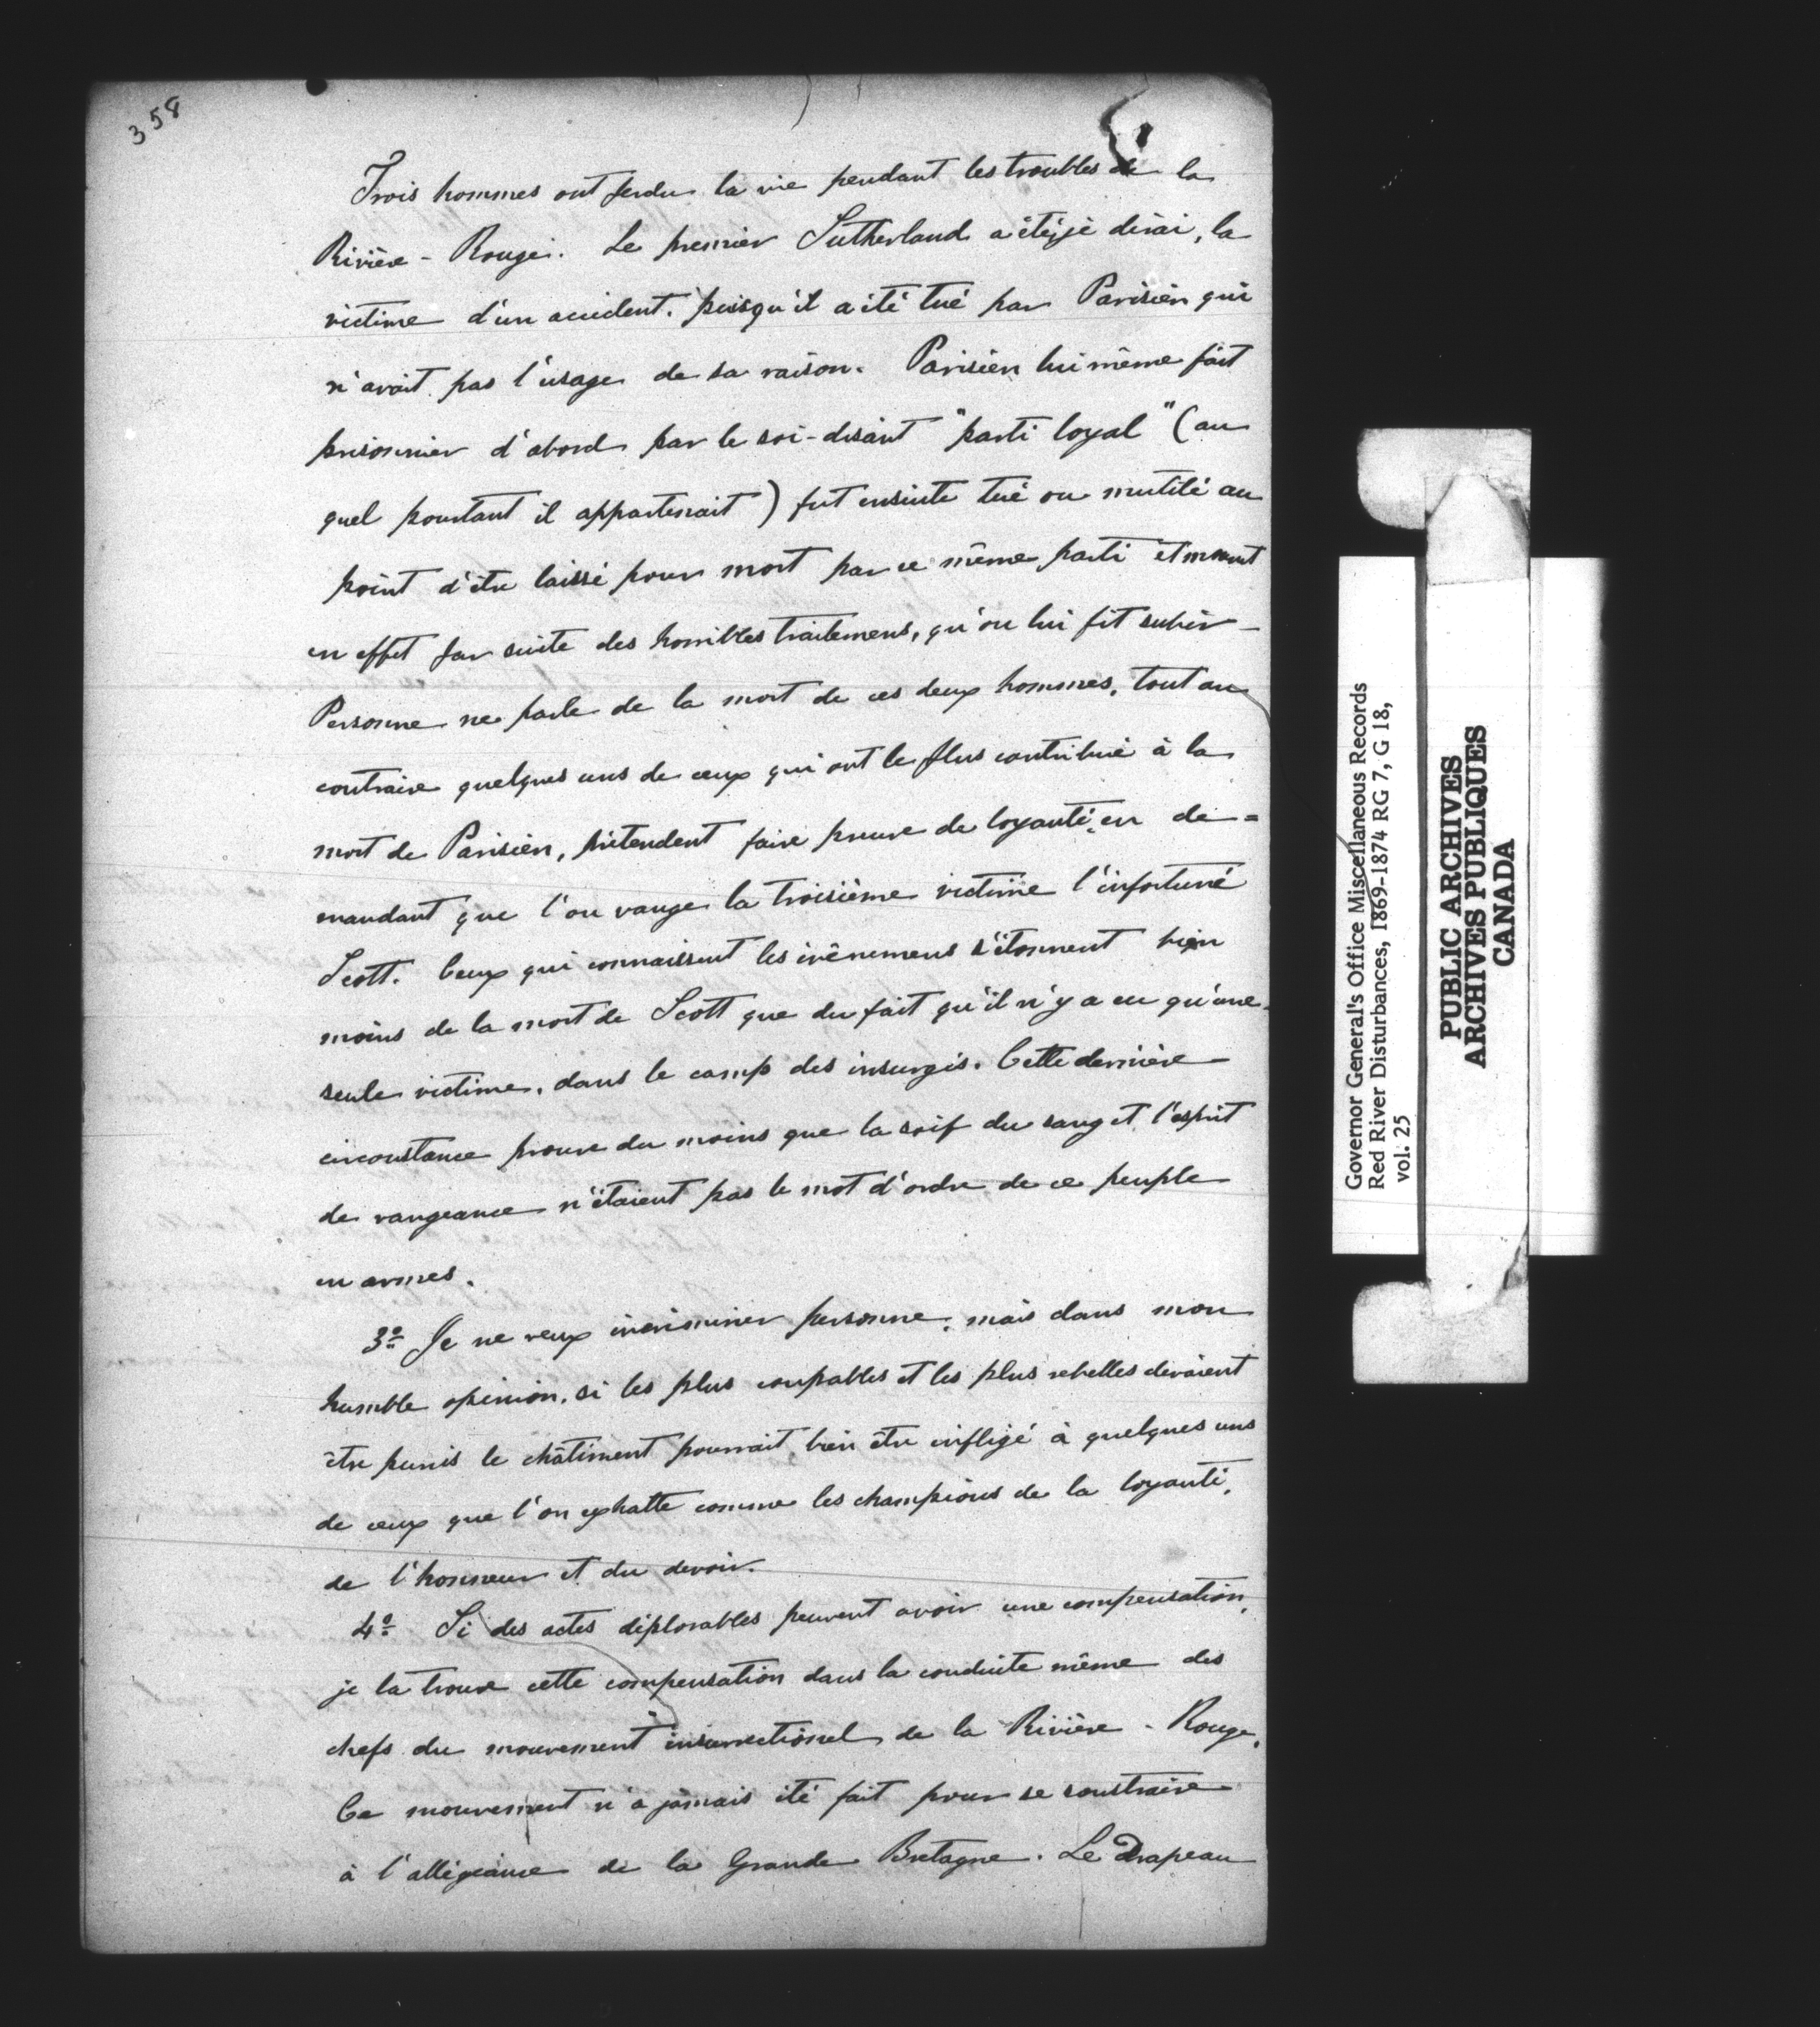 358
Trois hommes ont perdu la vie pendant les troubles de la
Rivière-Rouge. Le premier Sutherland a été, je dirai, la
victime d'un accident, puisqu'il a été tué par Parisien qui
n'avait pas l'usage de sa raison. Parisien lui même fait
prisonnier d'abord par le soi-disant "parti loyal" (au
quel pourtant il appartenait) fut ensuite tué ou mutilé au
point d'être laissé pour mort par ce même parti et mourut
en effet par suite des horribles traitemens, qu'on lui fit subir –
Personne ne parle de la mort de ces deux hommes, tout au
contraire quelques uns de ceux qui ont le plus contribué à la
mort de Parisien, prétendent faire preuve de loyauté en de=
mandant que l'on vange la troisième victime l'infortuné
Scott. Ceux qui connaissent les évènemens s'étonnent bien
moins de la mort de Scott que du fait qu'il n'y a eu qu'une
seule victime, dans le camp des insurgés. Cette dernière
circonstance prouve du moins que la soif du sang et l'esprit
de vangeance n'étaient pas le mot d'ordre de ce peuple
en armes.
3º Je ne veux incriminer personne; mais dans mon
humble opinion, si les plus coupables et les plus rebelles devaient
être punis le châtiment pourrait bien être infligé à quelques uns
de ceux que l'on exhatte comme les champions de la loyauté,
de l'honneur et du devoir.
4º Si des actes déplorables peuvent avoir une compensation,
je la trouve cette compensation dans la conduite même des
chefs du mouvement insurrectionel de la Rivière-Rouge.
Ce mouvement n'a jamais été fait pour se soustraire
à l'allégeance de la Grande Bretagne. Le Drapeau
Governor General's Office Miscellaneous Records
Red River Disturbances, 1869-1874 RG 7, G 18,
vol. 25
PUBLIC ARCHIVES
ARCHIVES PUBLIQUES
CANADA